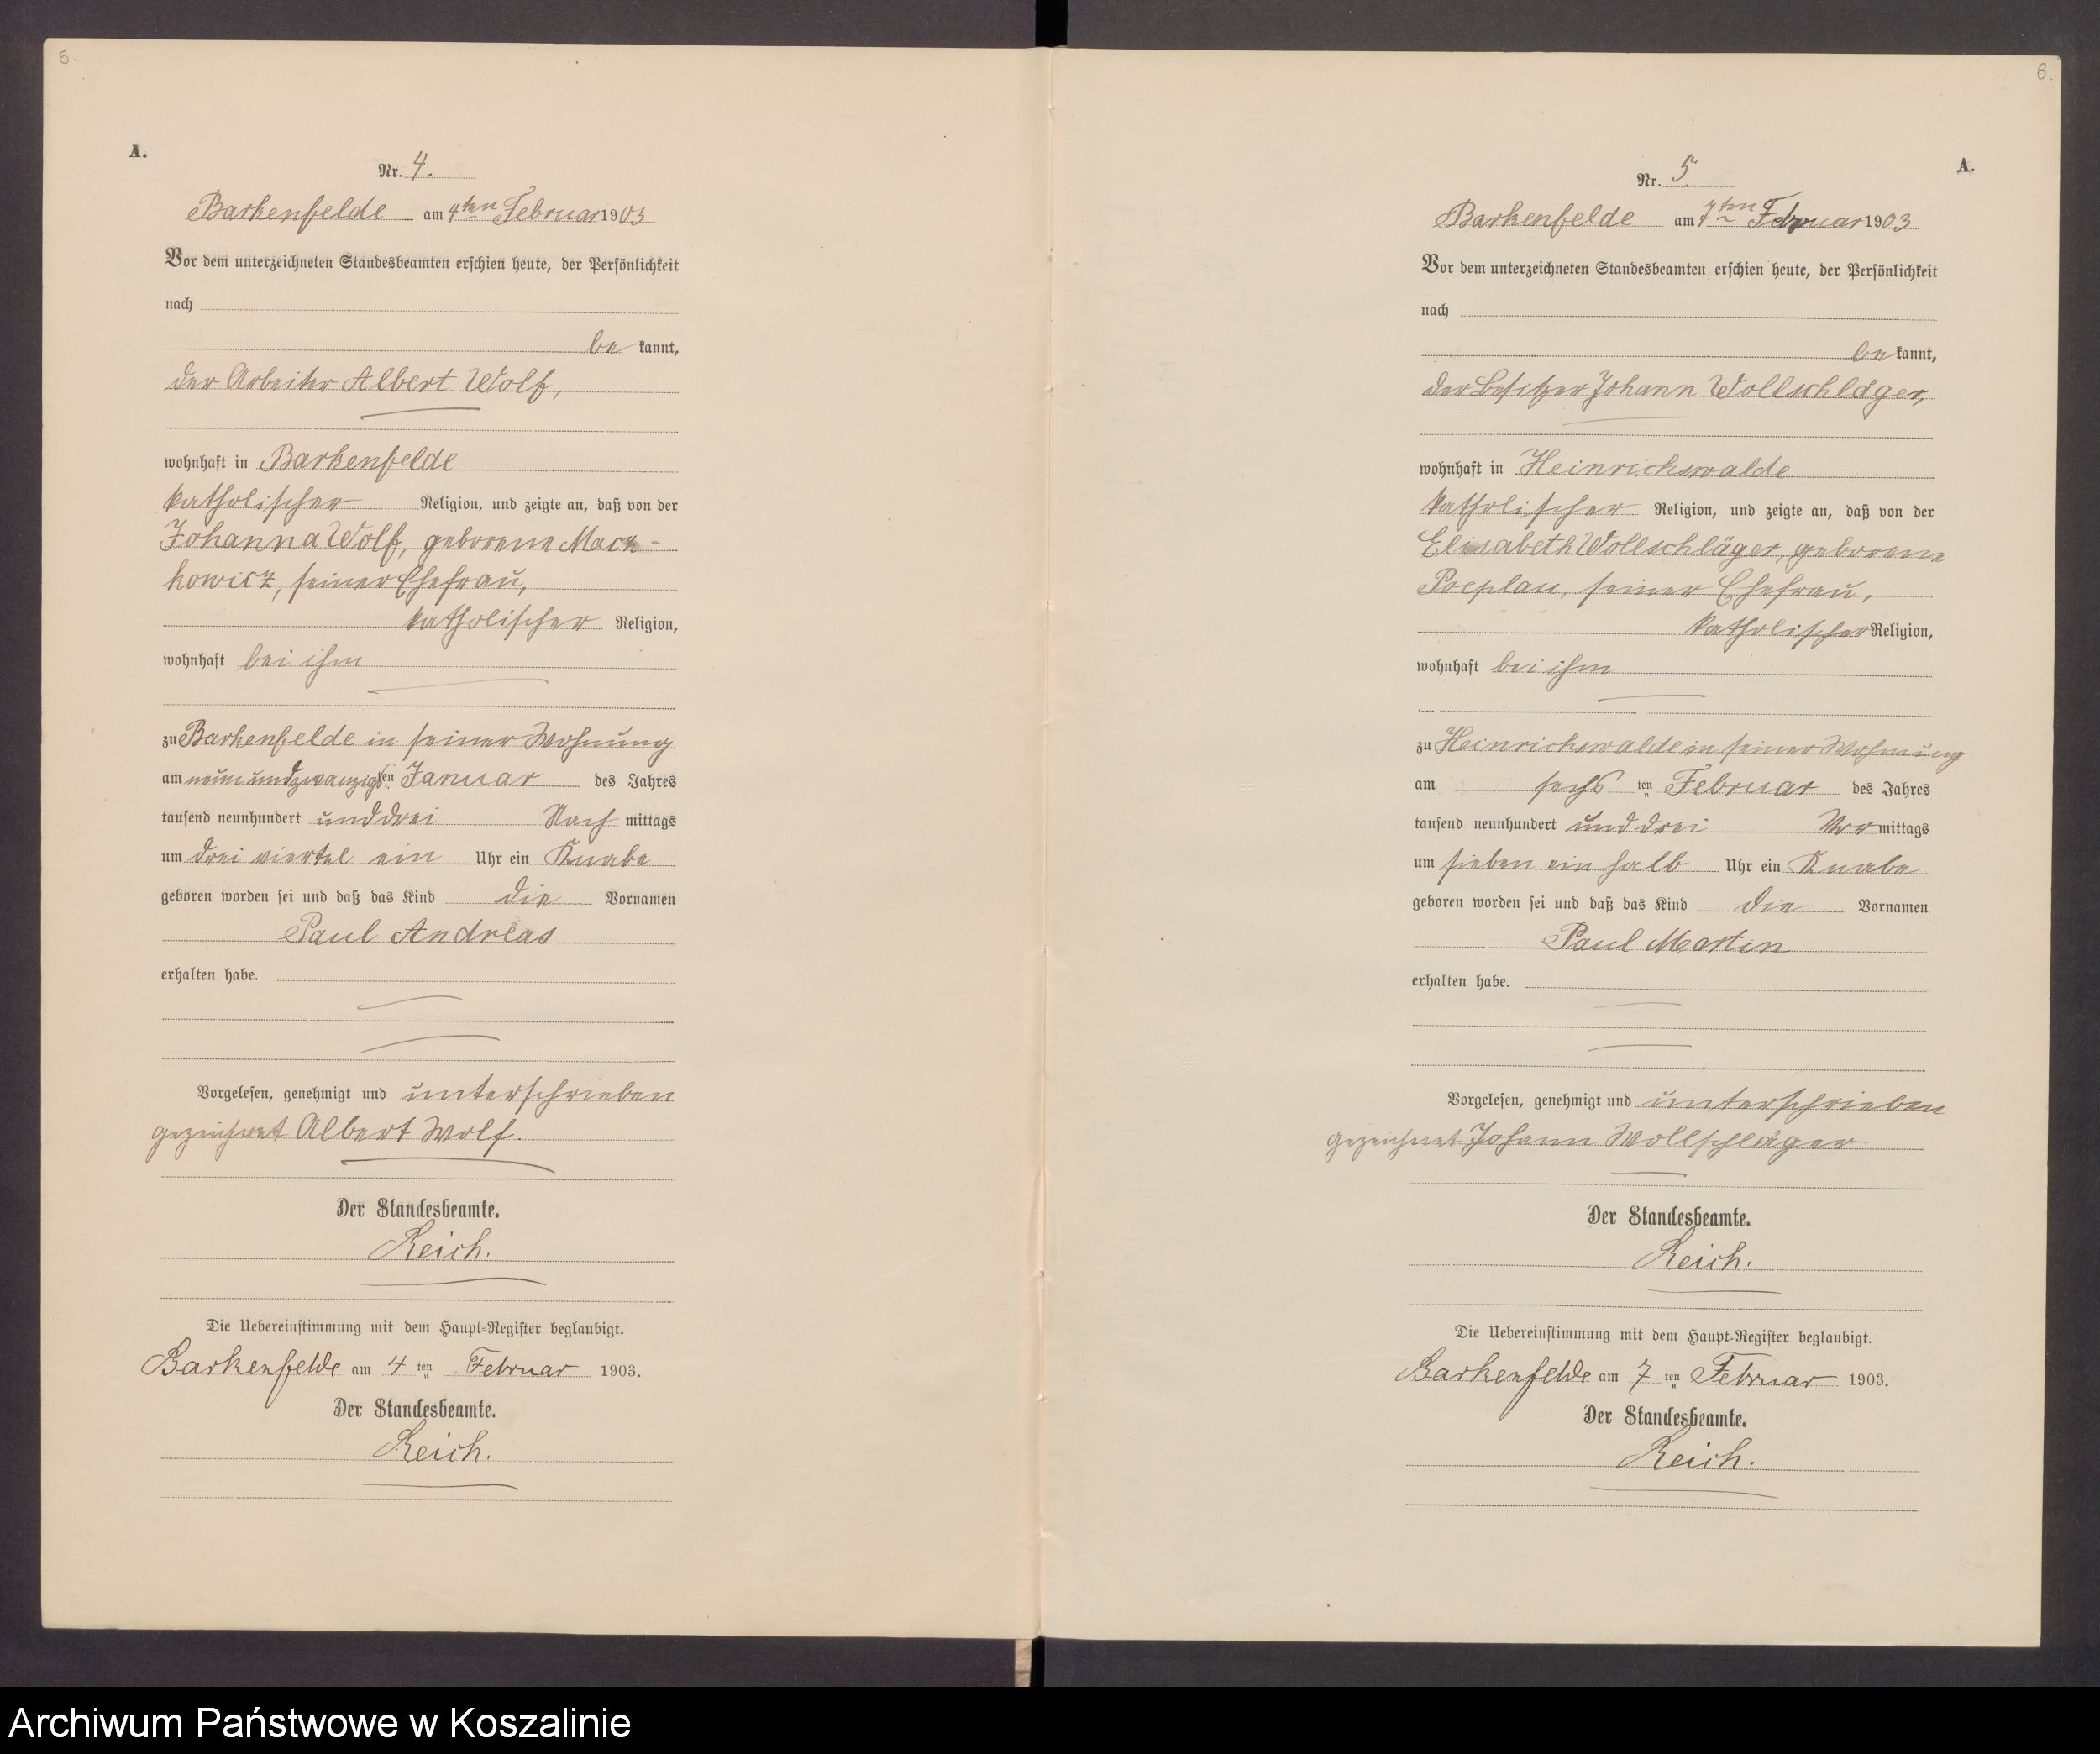 5.
A.
Nr. 4.
Barkenfelde am 4ten Februar 1903
Vor dem unterzeichneten Standesbeamten erschien heute, der Persönlichkeit
nach
be kannt,
der Arbeiter Albert Wolf,
wohnhaft in Barkenfelde
katholischer Religion, und zeigte an, daß von der
Johanna Wolf, geborene Mack-
kowicz, seiner Ehefrau,
katholischer Religion,
wohnhaft bei ihm
zu Barkenfelde in seiner Wohnung
am neun und zwanzigsten Januar des Jahres
tausend neunhundert und drei Nach mittags
um drei viertel ein Uhr ein Knabe
geboren worden sei und daß das Kind die Vornamen
Paul Andreas
erhalten habe.
Vorgelesen, genehmigt und unterschrieben
gezeichnet Albert Wolf.
Der Standesbeamte.
Reich.
Die Uebereinstimmung mit dem Haupt-Register beglaubigt.
Barkenfelde am 4 ten Februar 1903.
Der Standesbeamte.
Reich.
6.
A.
Nr. 5
Barkenfelde am 7ten Februar 1903
Vor dem unterzeichneten Standesbeamten erschien heute, der Persönlichkeit
nach
be kannt,
der Besitzer Johann Wollschläger,
wohnhaft in Heinrichswalde
katholischer Religion, und zeigte an, daß von der
Elisabeth Wollschläger, geborene
Poeplau, seiner Ehefrau,
katholischer Religion,
wohnhaft bei ihm
zu Heinrichswalde in seiner Wohnung
am sechs ten Februar des Jahres
tausend neunhundert und drei Vor mittags
um sieben ein halb Uhr ein Knabe
geboren worden sei und daß das Kind die Vornamen
Paul Martin
erhalten habe.
Vorgelesen, genehmigt und unterschrieben
gezeichnet Johann Wollschläger
Der Standesbeamte.
Reich.
Die Uebereinstimmung mit dem Haupt-Register beglaubigt.
Barkenfelde am 7 ten Februar 1903.
Der Standesbeamte.
Reich.
Archiwum Państwowe w Koszalinie